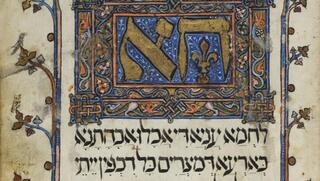 הא
לחמא עניא די אכלו אבהתנא
בארעא דמצרים כל דכפין ייתי